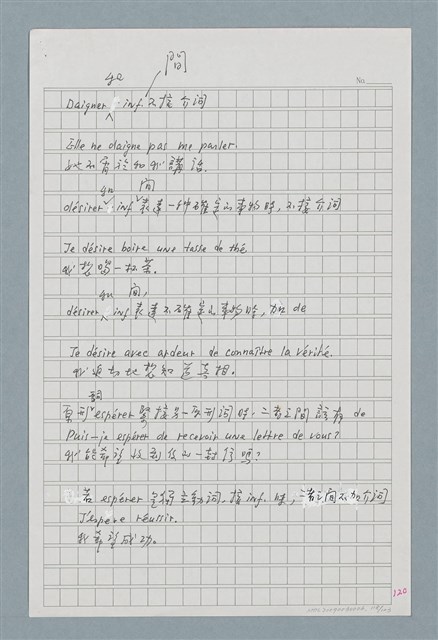 間
No.
Daigner inf 不接介词
Elle ne daigne pas me parler.
她不肯於和我講話。
間
désirer inf 表達一种確定的事物時，不接介词
Je désire boire une tasse de thé.
我想喝一杯茶。
間,
désirer inf 表達不確定的事物時，加 de
Je désire avec ardeur de connaître la vérité.
我迫切地想知道真相。
詞
原形 espérer 緊接另一原形词時，二者之間該有 de
Puis-je espérer de recevoir une lettre de vous?
我能希望收到你的一封信嗎？
若 espérer 是主動词，接 inf. 時，之间不加介词
J'espère réussir.
我希望成功。
120